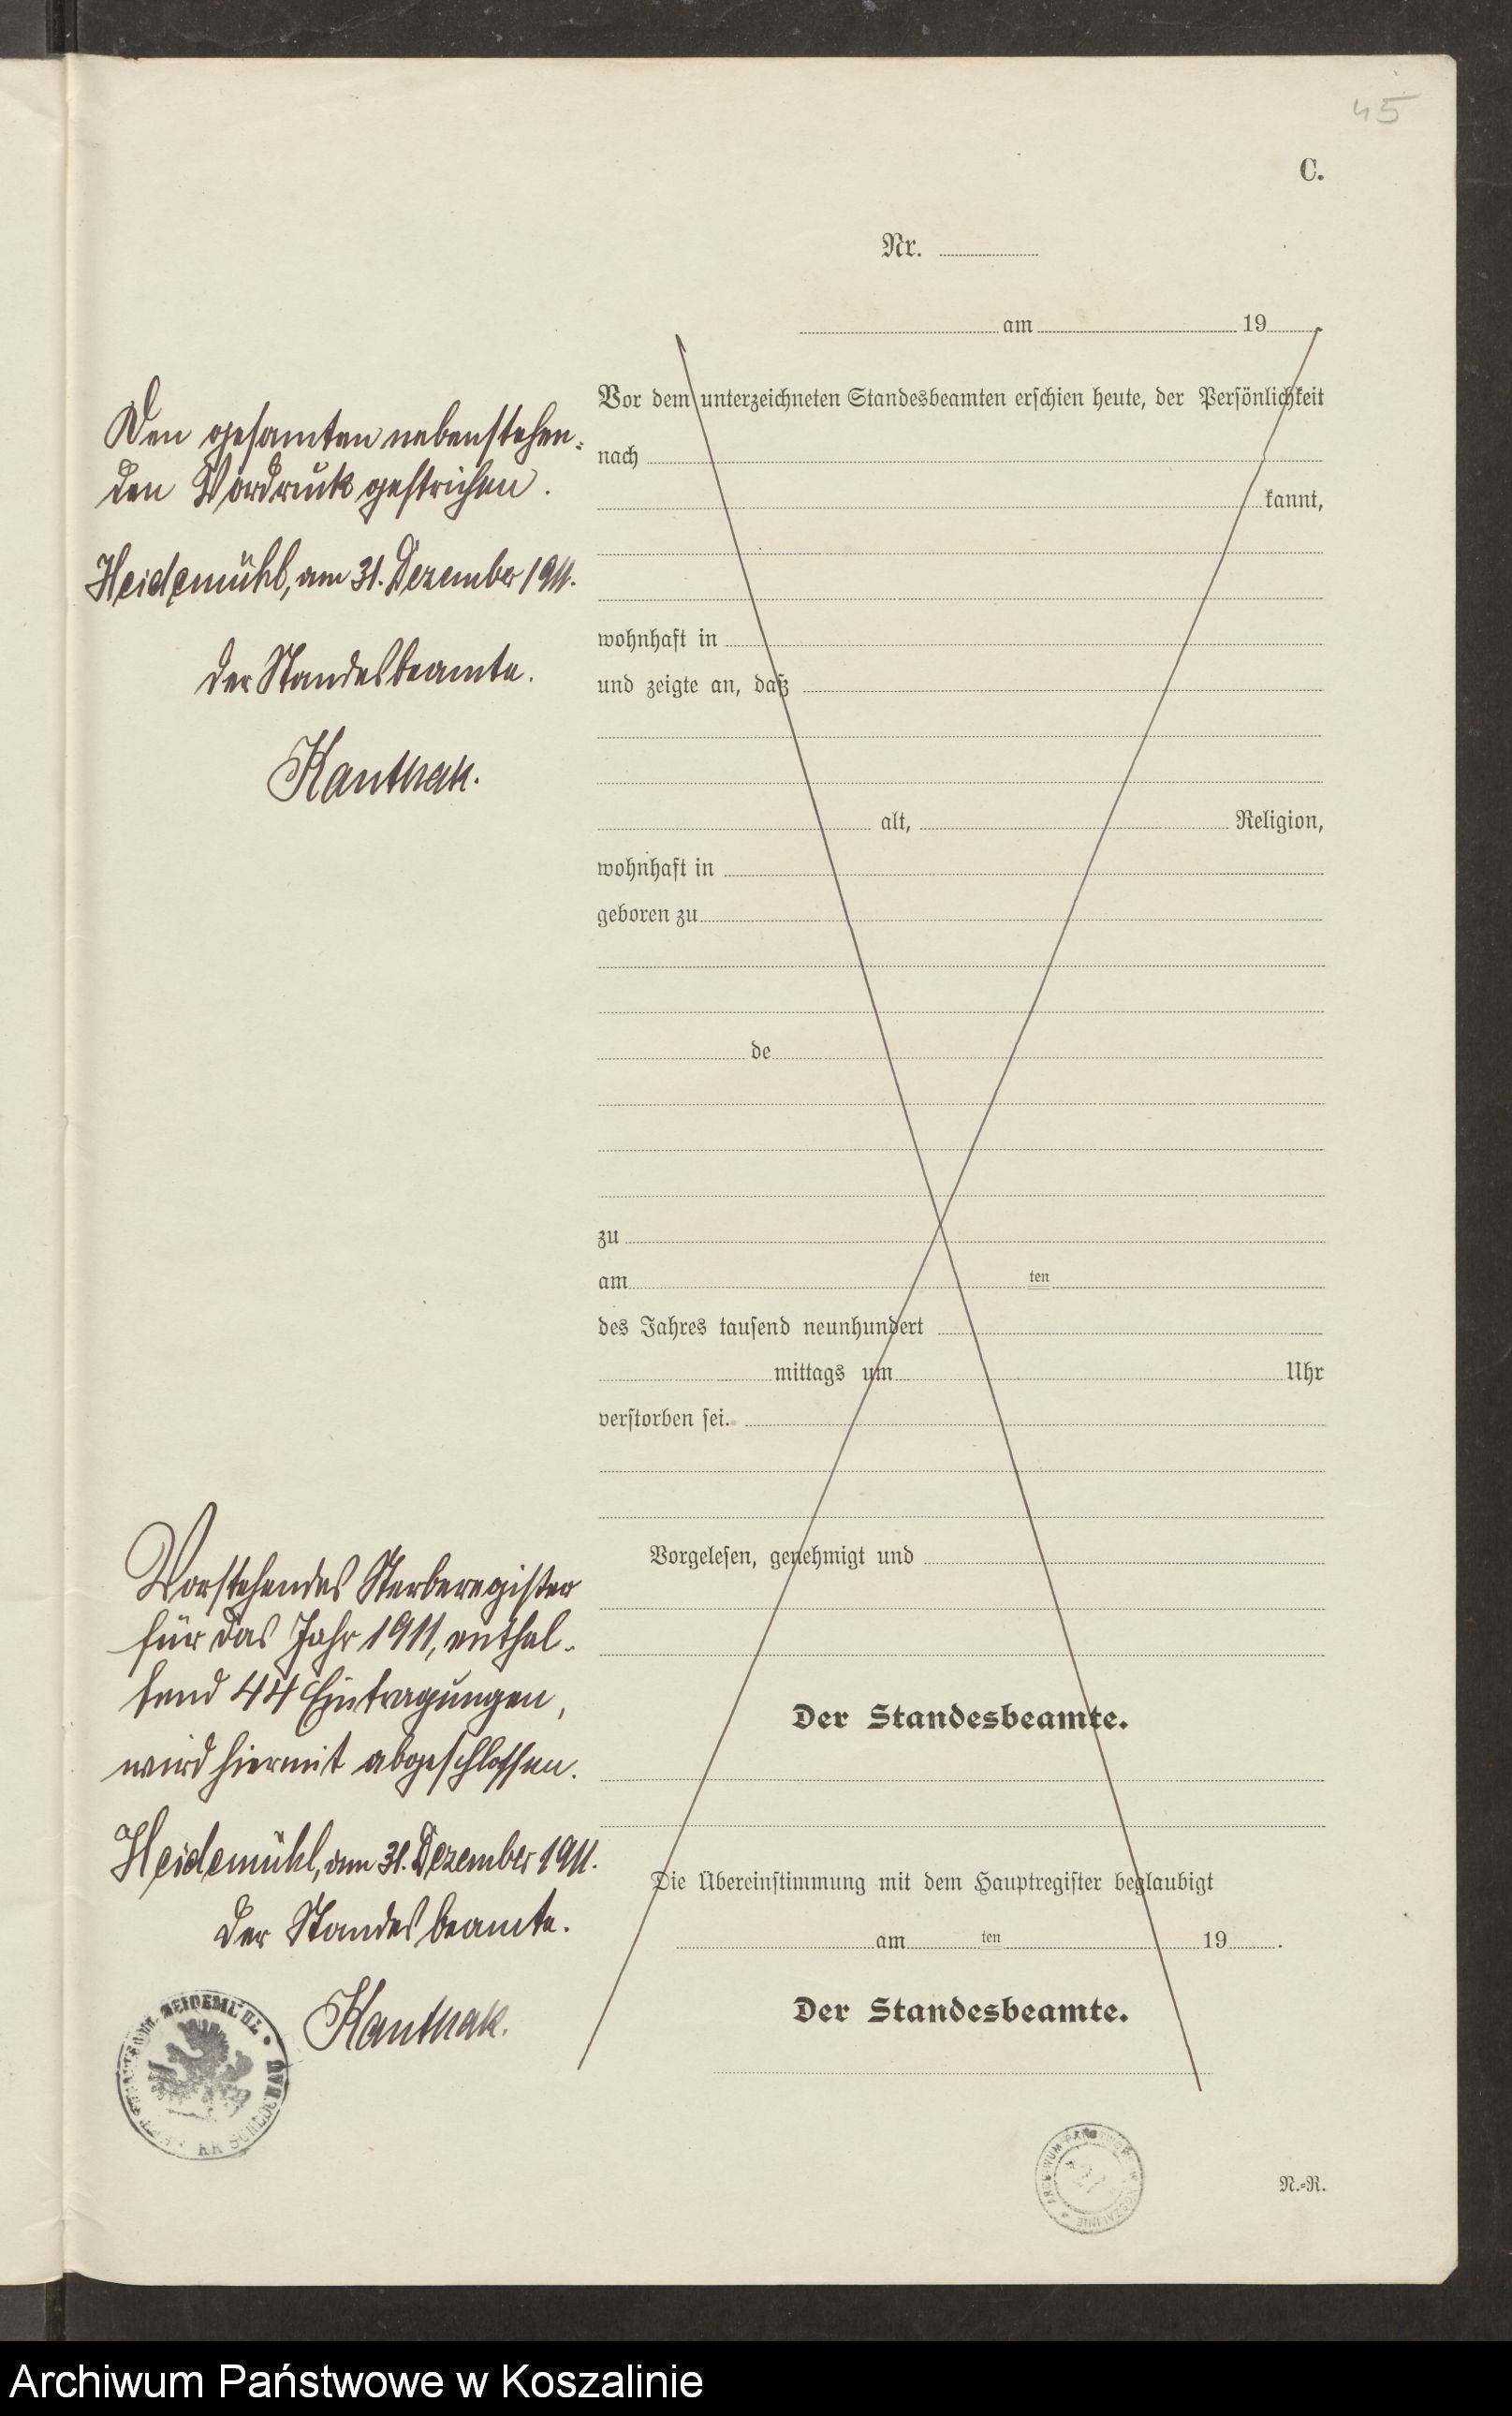 45
C.
Nr.
am 19
Vor dem unterzeichneten Standesbeamten erschien heute, der Persönlichkeit
nach
kannt,
wohnhaft in
und zeigte an, daß
alt, Religion,
wohnhaft in
geboren zu
de
zu
am ten
des Jahres tausend neunhundert
mittags um Uhr
verstorben sei.
Vorgelesen, genehmigt und
Der Standesbeamte.
Die Übereinstimmung mit dem Hauptregister beglaubigt
am ten 19 .
Der Standesbeamte.
N.=R.
Den gesamten nebenstehen=
den Vordruck gestrichen.
Heidemühl, am 31. Dezember 1911.
Der Standesbeamte.
Kanthak.
Vorstehendes Sterberegister
für das Jahr 1911, enthal=
tend 44 Eintragungen,
wird hiermit abgeschlossen.
Heidemühl, am 31. Dezember 1911.
Der Standesbeamte.
Kanthak.
HEIDEMÜHL
KR SCHLOCHAU
ARCHIWUM PAŃSTWOWE W KOSZALINIE
Archiwum Państwowe w Koszalinie